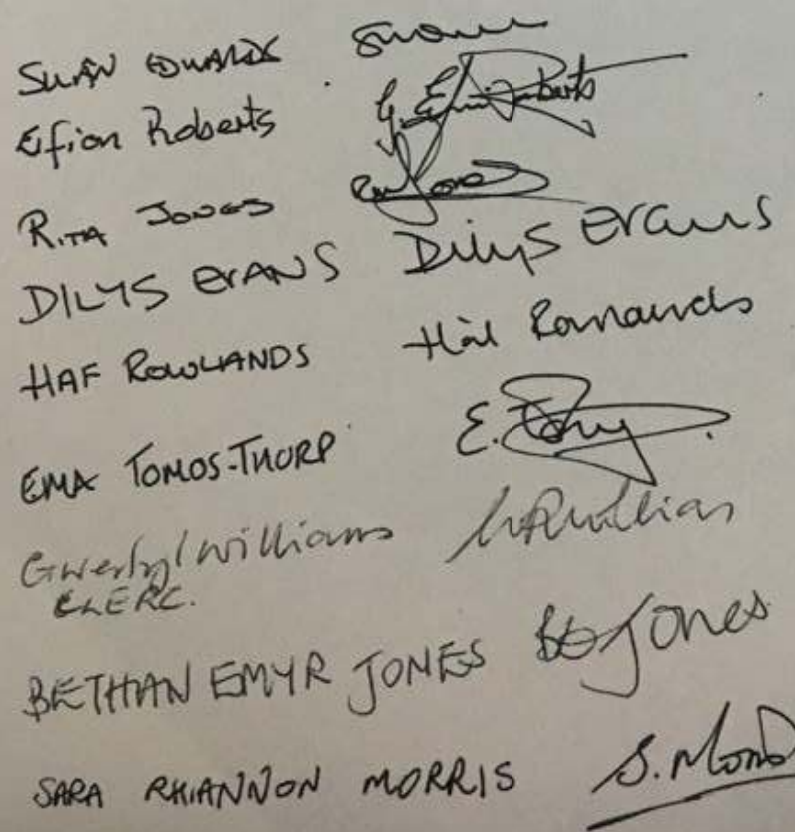 SIÂN EDWARDS
Eifion Roberts G. Eifion Roberts
RITA JONES
DILYS EVANS Dilys Evans
HAF ROWLANDS Haf Rowlands
EMA TOMOS-THORP E.
Williams
CLERC.
BETHAN EMYR JONES Jones
SARA RHIANNON MORRIS S. Morris